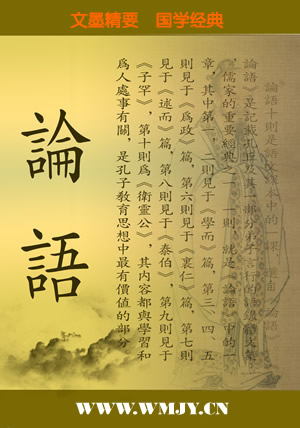 文墨精要 国学经典
論語十則是語文課本中的一課，選自《論語
論語》是記載孔子及其一部分弟子言行的語錄體散文集
，儒家的重要經典之一。一則，就是《論語》中的一
章，其中第一、二則見于《學而》篇，第三、四、五
則見于《爲政》篇，第六則見于《裏仁》篇，第七則
見于《述而》篇，第八則見于《泰伯》，第九則見于
《子罕》，第十則爲《衛靈公》，其内容都與學習和
爲人處事有關，是孔子教育思想中最有價值的部分
論語
WWW.WMJY.CN